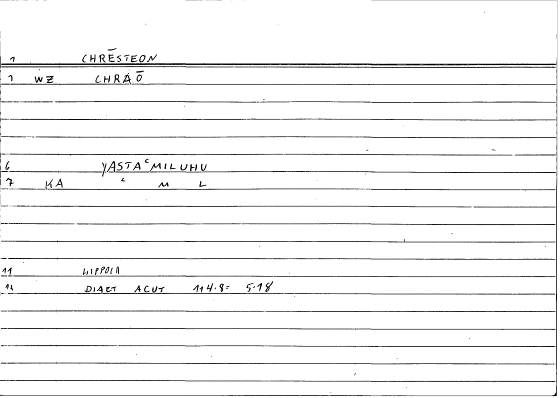 1 CHRĒSTEON
1 WZ CHRAŌ
6 YASTAʿMILUHU
7 KA ʿ M L
11 HIPPOCR
12 DIAET ACUT 114.8= 5.18